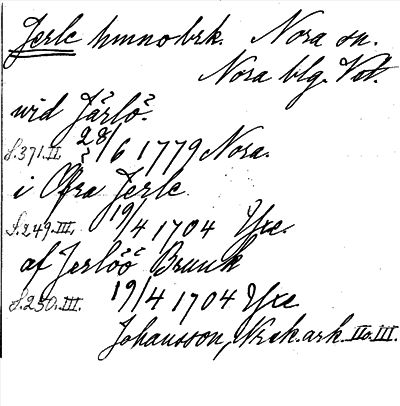 Jerle hmnobrk. Nora sn.
Nora blg. Vstm.
wid Järlö.
S. 371. II. 28/6 1779 Nora.
i Öfra Jerle
S. 249. III. 19/4 1704 Yxe.
af Jerlöö Bruuk
S. 250. III. 19/4 1704 Yxe
Johansson, Nrsk. ark. II o. III.